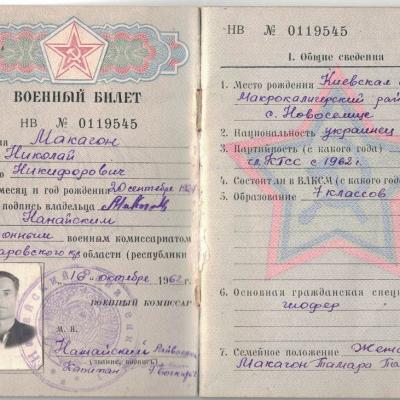 ВОЕННЫЙ БИЛЕТ
НВ № 0119545
Макагон
Николай
Никифорович
месяц и год рождения 20 сентября
подпись владельца
Нанайским
военным комиссариатом
области (республики
"16" октября 1962 г.
ВОЕННЫЙ КОМИССАР
М. П.
Нанайский
Капитан
(звание, подпись)
НВ № 0119545
I. Общие сведения
1. Место рождения Киевская
Макрокалигерский рай
с. Новоселице
2. Национальность украинец
3. Партийность (с какого года)
чл. КПСС с 1962 г.
4. Состоял ли в ВЛКСМ (с какого года
5. Образование 7 классов
6. Основная гражданская спец
шофер
7. Семейное положение Жена
Макагон Тамара